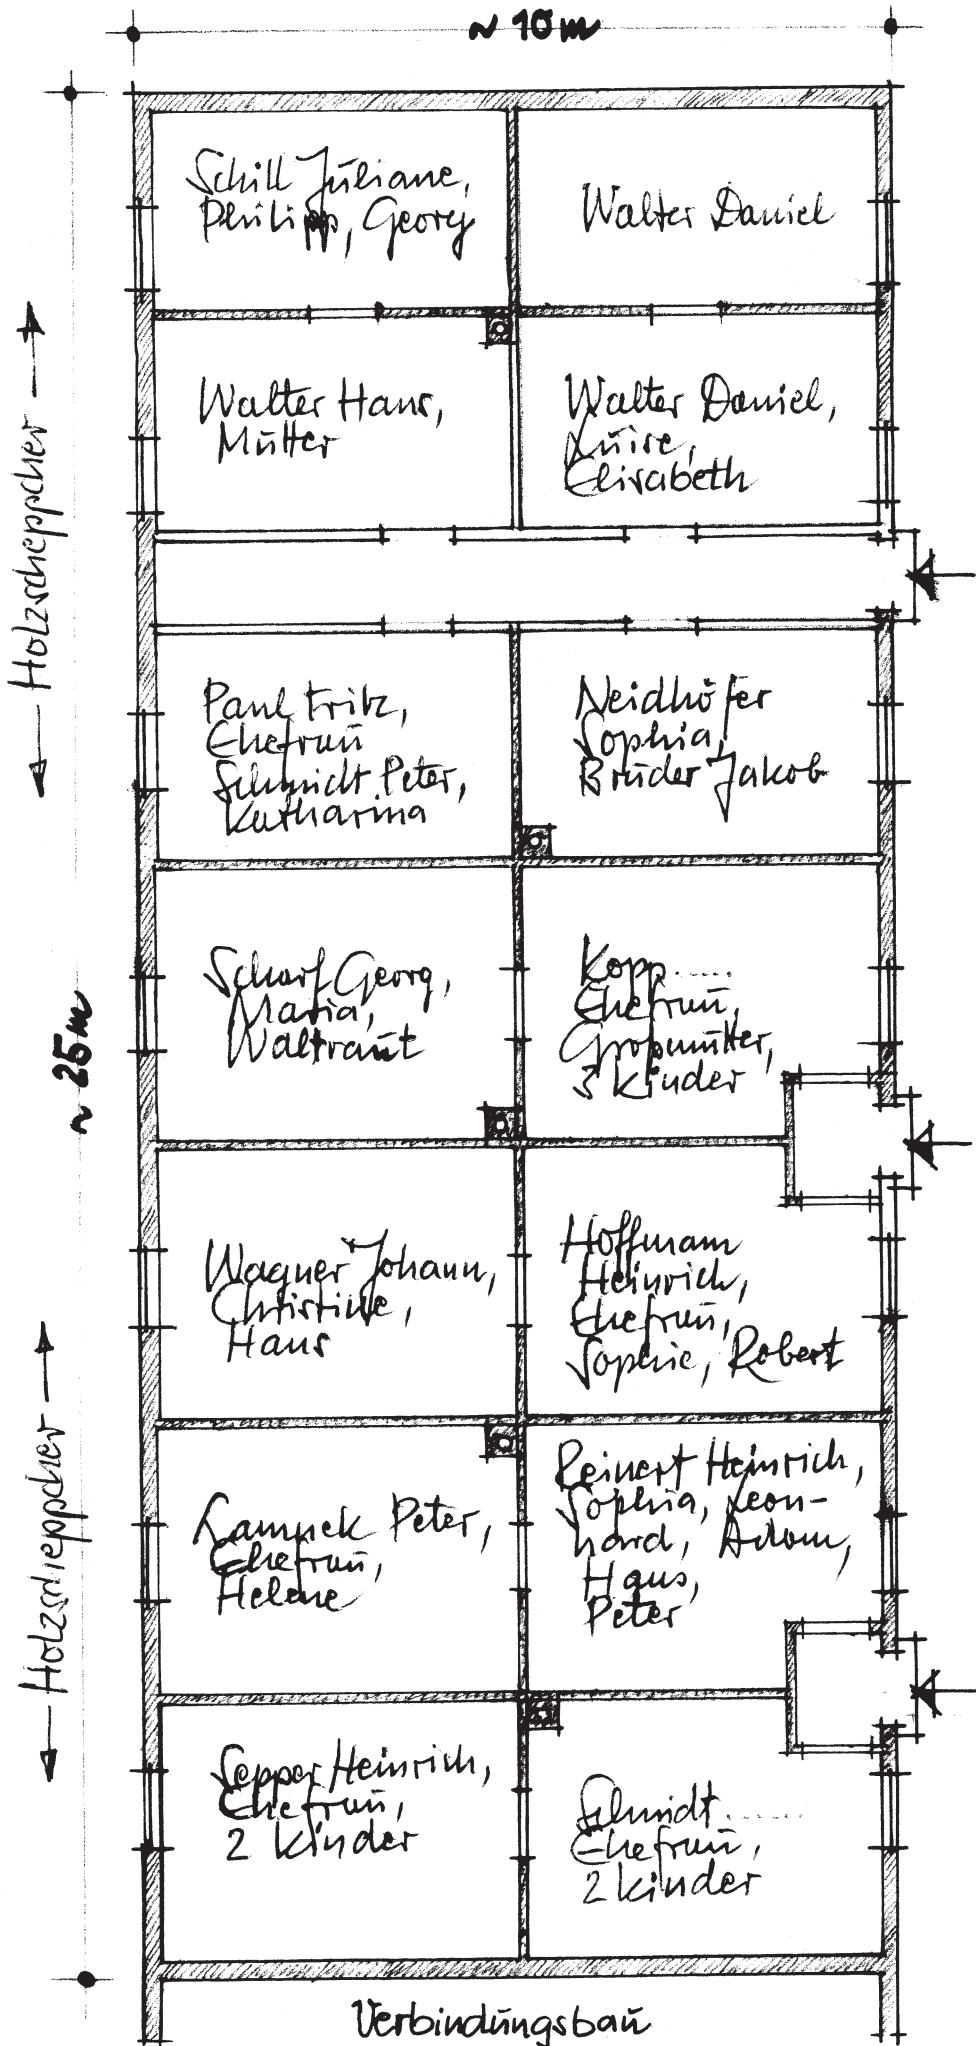 ~ 10m
Schill Juliane,
Philipp, Georg
Walter Daniel
Walter Hans,
Mutter
Walter Daniel,
Luise,
Elisabeth
Holzscheppcher
Paul Fritz,
Ehefrau
Schmidt Peter,
Katharina
Neidhöfer
Sophia,
Bruder Jakob
~ 25m
Scharf Georg,
Maria,
Waltraut
Kopp.....
Ehefrau,
Großmutter,
3 Kinder
Wagner Johann,
Christine,
Hans
Hoffmann
Heinrich,
Ehefrau,
Sophie, Robert
Holzscheppcher
Peter,
Ehefrau,
Helene
Reinert Heinrich,
Sophia, Leon-
hard, Adam,
Hans,
Peter
Sepper Heinrich,
Ehefrau,
2 Kinder
Schmidt.......
Ehefrau,
2 Kinder
Verbindungsbau